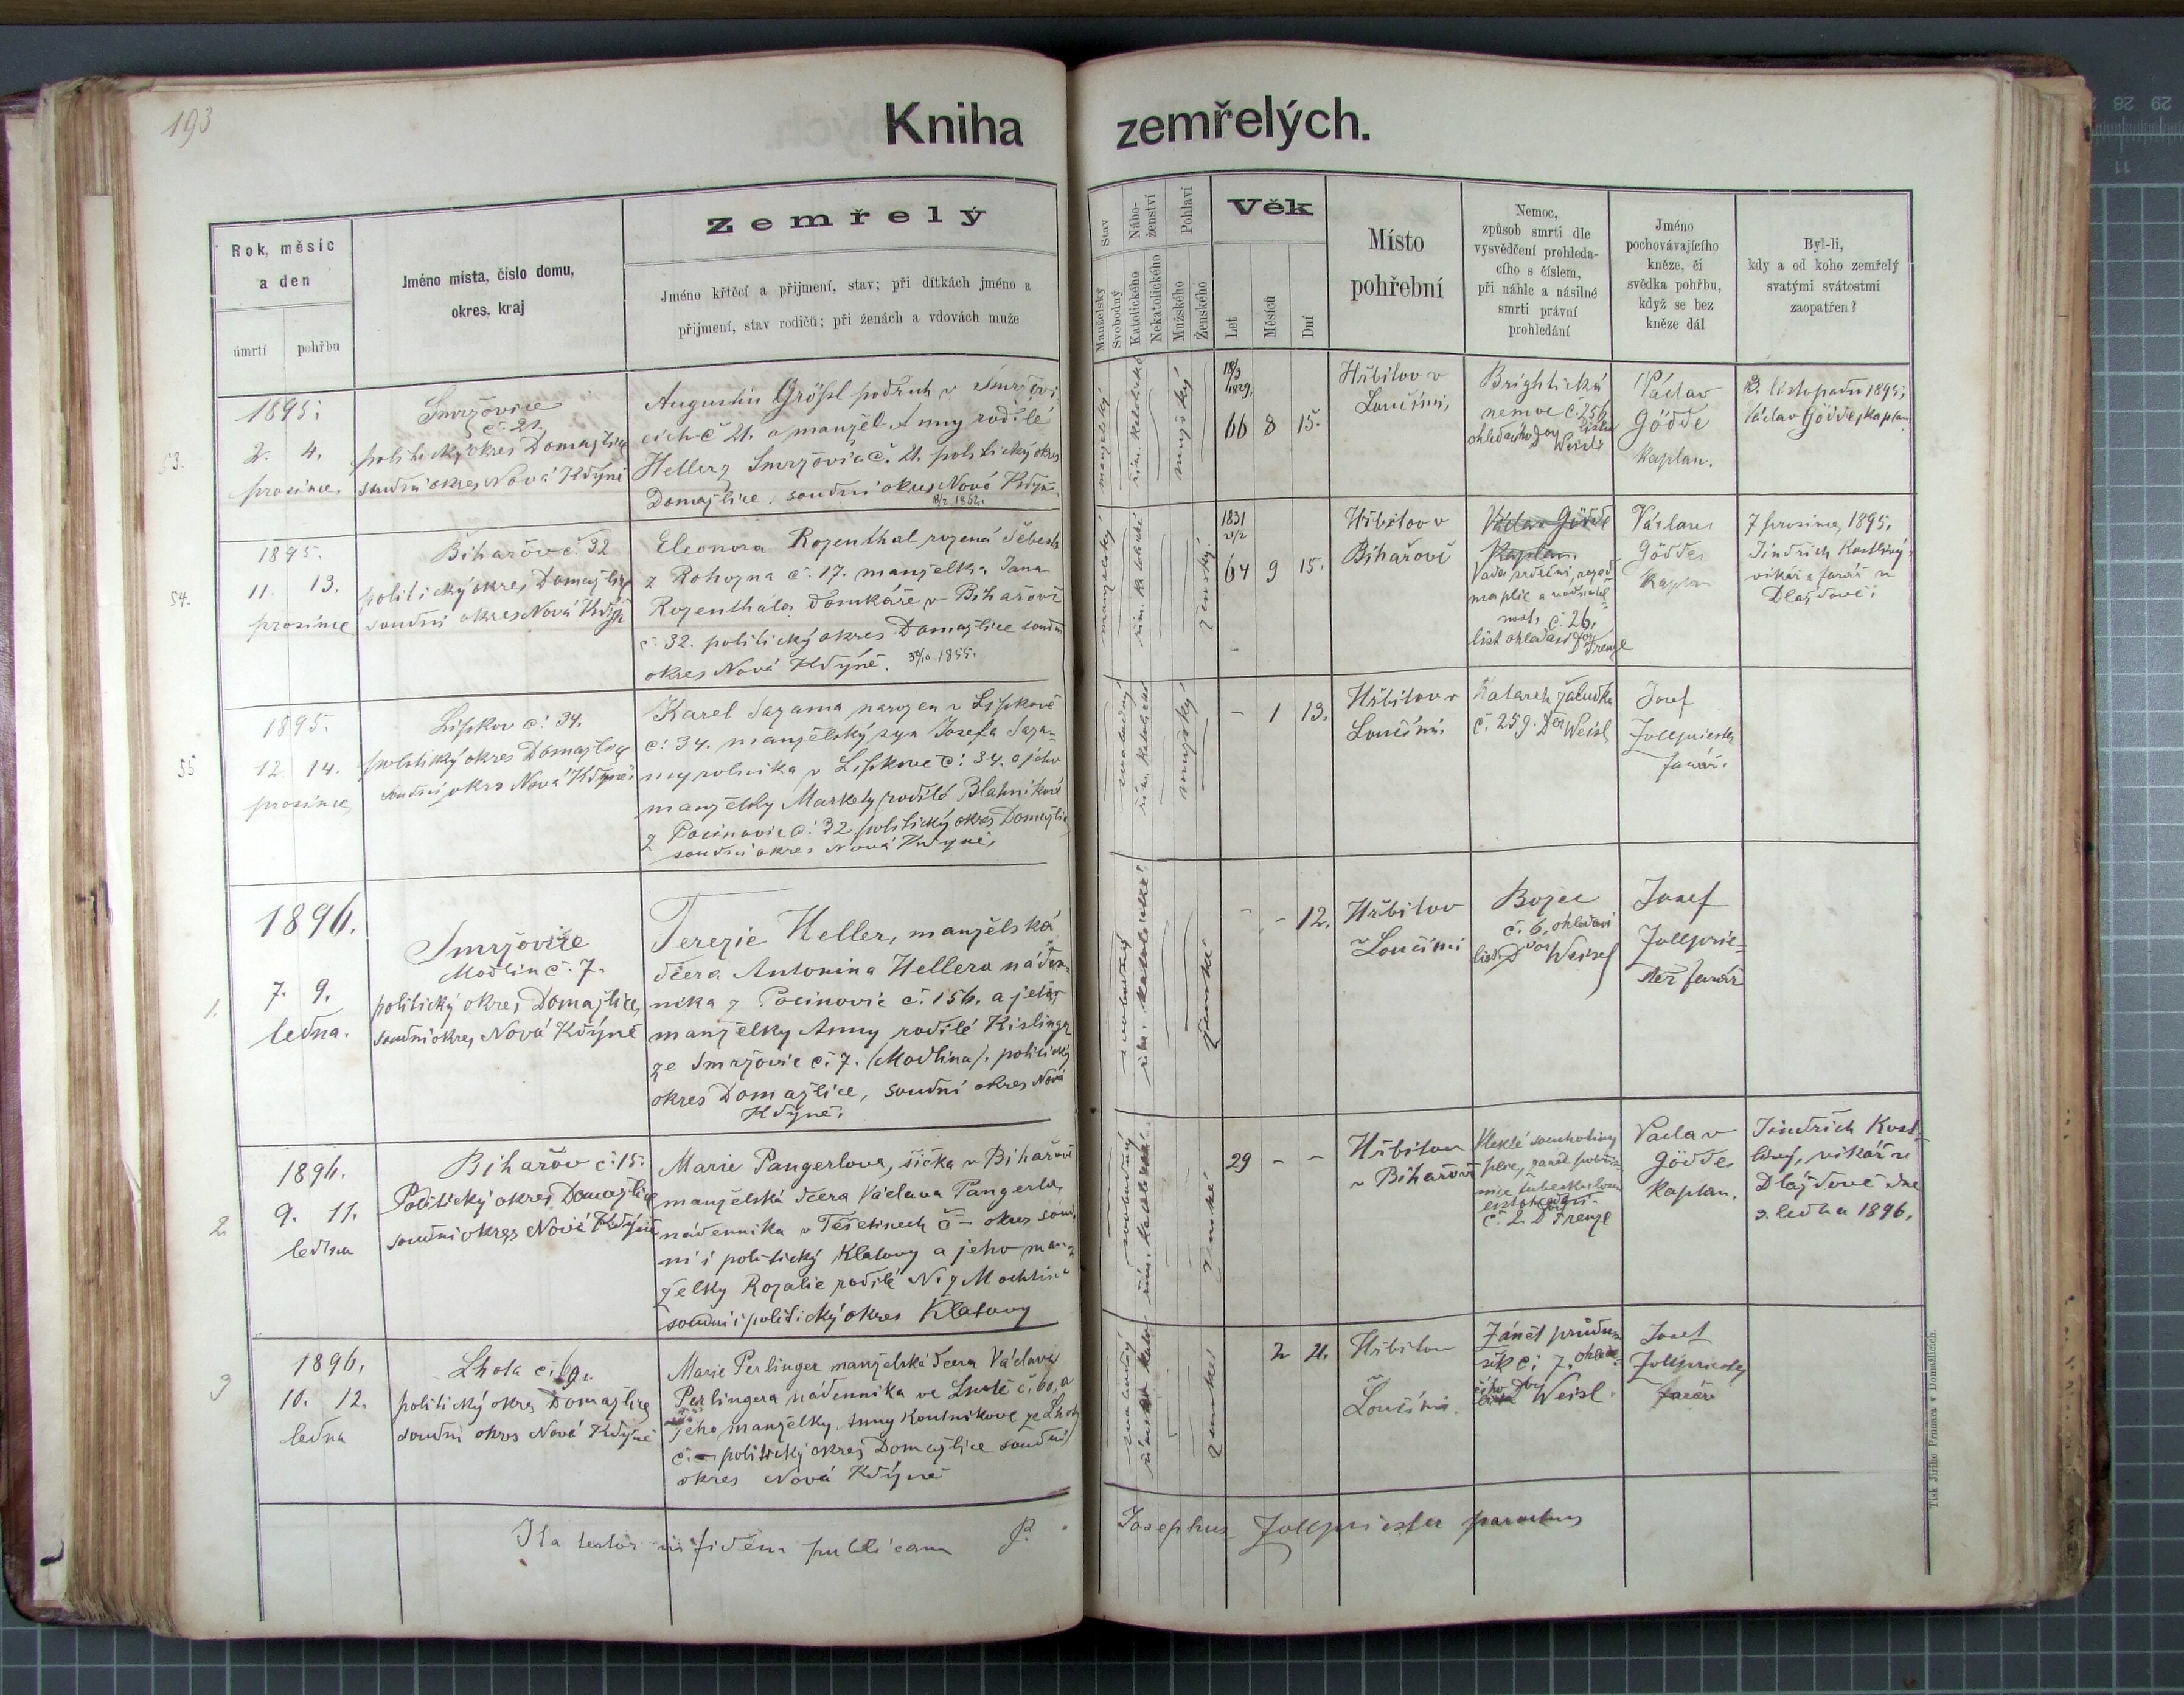 193
Kniha zemřelých.
Rok, měsíc
a den
úmrtí
pohřbu
Jméno místa, číslo domu,
okres, kraj
Zemřelý
Jméno křtěcí a přijmení, stav; při dítkách jméno a
přijmení, stav rodičů; při ženách a vdovách muže
Stav
Manželský
Svobodný
Nábo-
ženství
Katolického
Nekatolického
Pohlaví
Mužského
Ženského
Věk
Let
Měsíců
Dní
Místo
pohřební
Nemoc,
způsob smrti dle
vysvědčení prohleda-
cího s číslem,
při náhle a násilné
smrti právní
prohledání
Jméno
pochovávajícího
kněze, či
svědka pohřbu,
když se bez
kněze dál
Byl-li,
kdy a od koho zemřelý
svatými svátostmi
zaopatřen?
53.
1895;
2. 4.
prosince,
Smržovice
č. 21.
politický okres Domažlice
soudní okres Nová Kdýně
Augustin Gröpl podruh v Smržovi
cích č 21. a manžel Anny rodilé
Heller z Smržovic č. 21. politický okres
Domažlice, soudní okres Nová Kdýn
1862.
manželský
řím. katolické
mužský
18/3
1829,
66 8 15.
Hřbitov v
Loučimi,
Brightická
nemoc č. 256
ohledacího listu
Weisl
Václav
Gödde
kaplan.
listopadu 1895;
Václav Gödde, kaplan
54.
1895.
11. 13.
prosince
Bihařov č. 32
politický okres Domažlice
soudní okres Nová Kdýň
Eleonora Rozenthal rozená Šebesta
z Rohozna č. 17. manželka Jana
Rozenthala domkáře v Bihařově
č. 32. politický okres Domažlice soudní
okres Nová Kdýně. 1855.
manželský
řím. katolické
ženský
1831
21/2
64 9 15.
Hřbitov v
Bihařově
Václav Gödde
Kaplan.
Vada srdeční, rozed
ma plic a vodnatel
nost, č. 26,
list ohledací Dor Frenzl
Václav
Gödde
kaplan
7 prosince 1895.
Jindřich Kostlivý
vikář a farář v
Dlažově;
55
1895.
12. 14.
prosince
Lipkov č. 34.
politický okres Domažlice
soudní okres Nová Kdýně;
Karel Sazama narozen v Lipkově
č. 34. manželský syn Josefa Saza-
my rolníka v Lipkově č. 34. a jeho
manželky Markety rodilé Blahníkové
z Pocinovic č. 32 politický okres Domažlice
soudní okres Nová Kdyně,
svobodný
řím. katolické
mužský
- 1 13.
Hřbitov v
Loučimi.
Katarrh žaludka
č. 259. Dor Weisl
Josef
Zollpriester
farář.
1.
1896.
7. 9.
ledna.
Smržovice
Modlin č. 7.
politický okres Domažlice,
soudní okres, Nová Kdýně
Terezie Heller, manželská
dcera Antonina Hellera náden
níka z Pocinovic č. 156. a jeho
manželky Anny rodilé Kislinger
ze Smržovic č. 7. (Modlina), politický
okres Domažlice, soudní okres Nová
Kdýně.
svobodný
řím. katolické
ženské
- - 12.
Hřbitov
v Loučimi
Bozec
č. 6, ohledací
list Dor Weisel
Josef
Zollprie-
ster farář
2.
1896.
9. 11.
ledna
Bihařov č. 15.
Politický okres Domažlice
soudní okres Nová Kdýně
Marie Pangerlova, šička v Bihařově
manželská dcera Václava Pangerla,
nádenníka v Těšetinech č - okres soud
ní i politický Klatovy a jeho man
želky Rozalie rodilé N. z Mochtína
soudní i politický okres Klatovy
svobodný
řím. katolické
ženské
29 - -
Hřbitov
v Bihařově
Vleklé souchotiny
plic, zánět pobřiš
nice tuberkulosní
č. 2 Dr Frenzl
Václav
Gödde
Kaplan.
Jindřich Kost-
livý, vikář v
Dlažově dne
3. ledna 1896.
3
1896.
10. 12.
ledna
Lhota č. 69.
politický okres Domažlice
soudní okres Nová Kdýně
Marie Perlinger manželská dcera Václava
Perlingera nádenníka ve Lhotě č. 60, a
jeho manželky Anny Koutníkové ze Lhoty
č. - politický okres Domažlice soudní
okres Nová Kdýně
svobodný
ženské
2 21.
Hřbitov
v Loučimi.
Zánět průdu
šk č. 7. ohleda-
cího Dor Weisl.
Josef
Zollpriester
farář
Ita testor in fidem publicam P. Josephus Zollpriester parochus
Tisk Jiřího Prunara v Domažlicích.